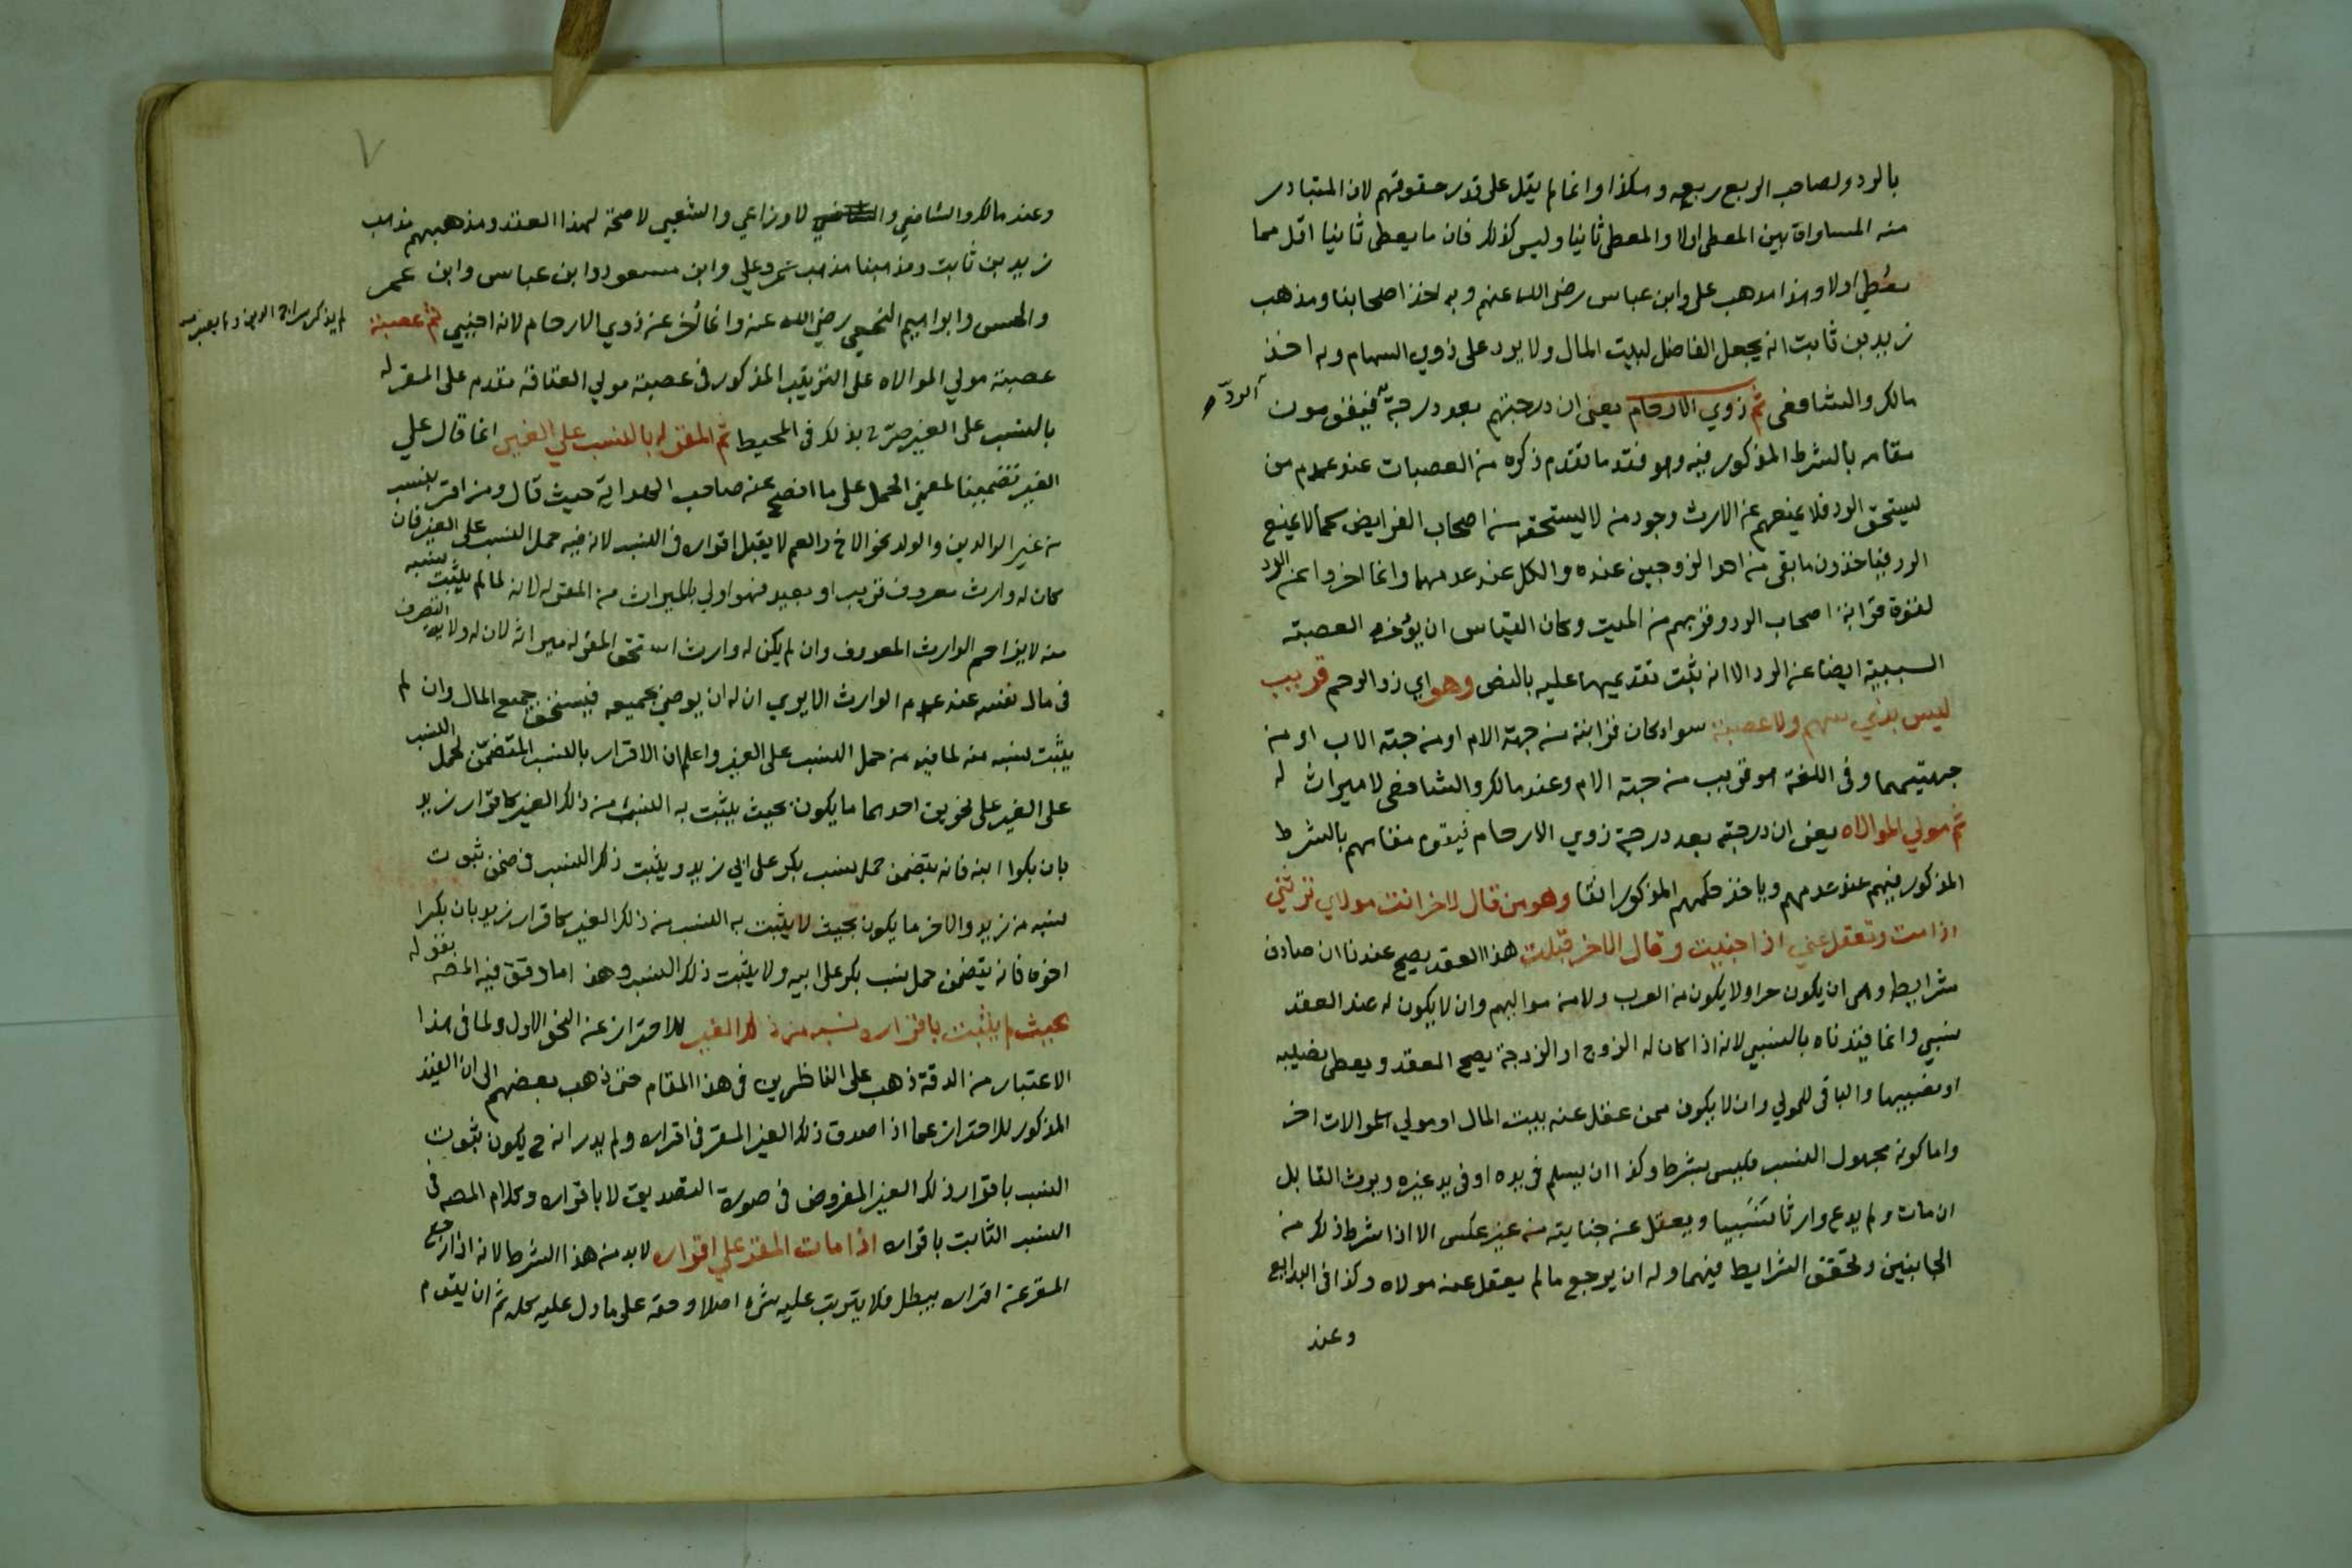 بالرد ولصاحب الربع ربعه وهكذا وانما لم يقل على قدر حقوقهم لان المتبادر
منه المساواة بين المعطى اولا والمعطى ثانيا وليس كذلك فان ما يعطى ثانيا اقل مما
يعطي اولا وهذا مذهب علي وابن عباس رضى الله عنهم وبه اخذ اصحابنا ومذهب
زيد بن ثابت انه يجعل الفاضل لبيت المال ولا يرد على ذوي السهام وبه اخذ
مالك والشافعى ثم ذوي الارحام يعنى ان درجتهم بعد درجة فيقومون
الرد
مقامه بالشرط المذكور فيه وهو فقد ما تقدم ذكره من العصبات عند عدم من
يستحق الرد فلا يمنعهم عن الارث وجود من لا يستحقه من اصحاب الفرايض كما لا يمنع
الرد فياخذون ما بقى من احد الزوجين عنده والكل عند عدمهما وانما اخروا عن الرد
لقوة قرابة اصحاب الرد وقربهم من الميت وكان القياس ان يؤخر العصبة
السببية ايضا عن الرد الا انه ثبت تقديمها عليه بالنص وهو اي ذو الرحم قريب
ليس بذي سهم ولا عصبة سواء كان قرابته من جهة الام او من جهة الاب او من
جهتيهما وفى اللغة هو قريب من جهة الام وعند مالك والشافعى لا ميراث له
ثم مولي الموالاه يعنى ان درجته بعد درجة ذوي الارحام فيقوم مقامهم بالشرط
المذكور فيهم عند عدمهم وياخذ حكمهم المذكور انفا وهو من قال لاخر انت مولاي ترثني
اذا مت وتعقل عني اذا جنيت وقال الاخر قبلت هذا العقد يصح عندنا ان صادف
شرايط وهى ان يكون حرا ولا يكون من العرب ولا من مواليهم وان لا يكون له عند العقد
نسبي وانما قيدناه بالنسبي لانه اذا كان له الزوج او الزوجة يصح العقد ويعطى نصيبه
او نصيبها والباقى للمولي وان لا يكون ممن عقل عنه بيت المال او مولي الموالات اخر
واما كونه مجهول النسب فليس بشرط وكذا ان يسلم فى يده او فى يد غيره ويرث القابل
ان مات ولم يدع وارثا نسبيا ويعقل عن جنايته من غير عكس الا اذا شرط ذلك من
الجانبين وتحقق الشرايط فيهما وله ان يرجع ما لم يعقل عنه مولاه وكذا فى البدايع
وعند
٧
وعند مالك والشافعي والاوزاعي والشعبي لا صحة لهذا العقد ومذهبهم مذهب
زيد بن ثابت ومذهبنا مذهب عمر وعلي وابن مسعود وابن عباس وابن عمر
والحسن وابراهيم النخعي رضي الله عنه وانما اخر عن ذوي الارحام لانه اجنبي ثم عصبته
عصبته مولي الموالاه على الترتيب المذكور فى عصبة مولي العتاقة مقدم على المقر له
بالنسب على الغير صرح بذلك فى المحيط ثم المقر له بالنسب علي الغير انما قال علي
الغير تضمينا لمعنى الحمل على ما افصح عنه صاحب الهداية حيث قال ومن اقر بنسب
من غير الوالدين والولد نحو الاخ والعم لا يقبل اقراره فى النسب لانه فيه حمل النسب على الغير فان
كان له وارث معروف قريب او بعيد فهو اولى بالميراث من المقر له لانه لما لم يثبت نسبه
منه لا يزاحم الوارث المعروف وان لم يكن له وارث استحق المقر له ميراثه لان له ولاية التصرف
فى مال نفسه عند عدم الوارث الا يرى ان له ان يوصى بجميعه فيستحق جميع المال وان لم
يثبت نسبه منه لما فيه من حمل النسب على الغير واعلم ان الاقرار بالنسب المتضمن لحمل النسب
على الغير على نحوين احدهما ما يكون بحيث يثبت به النسب من ذلك الغير كاقرار زيد
بان بكرا ابنه فانه يتضمن حمل نسب بكر على ابي زيد ويثبت ذلك النسب فى ضمن ثبوت
نسبه من زيد والاخر ما يكون بحيث لا يثبت به النسب من ذلك الغير كاقرار زيد بان بكرا
اخوه فانه يتضمن حمل نسب بكر على ابيه ولا يثبت ذلك النسب وهذا ما وقق فيه المص بقوله
بحيث لم يثبت باقراره نسبه من ذلك الغير للاحتراز عن النحو الاول ولما فى هذا
الاعتبار من الدقة ذهب على الناظرين فى هذا المقام حتى ذهب بعضهم الى ان القيد
المذكور للاحتراز عما اذا صدق ذلك الغير المقر فى اقراره ولم يدر انه ح يكون ثبوت
النسب باقرار ذلك الغير المفروض فى صورة التصديق لا باقراره وكلام المص فى
النسب الثابت باقراره اذا مات المقر علي اقراره لا بد من هذا الشرط لانه اذا رجع
المقر عن اقراره يبطل فلا يترتب عليه شئ اصلا وحقه على ما دل عليه محله ثم ان يقدم